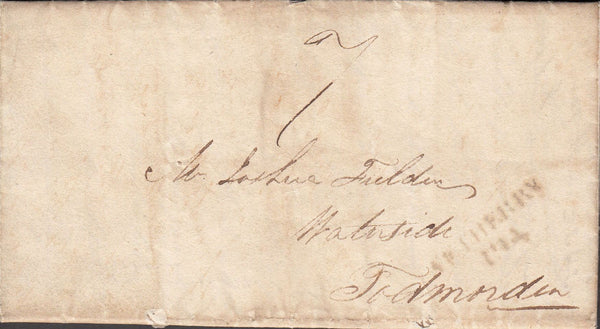 7
Mr. Joshua Fielden
Waterside
Todmorden